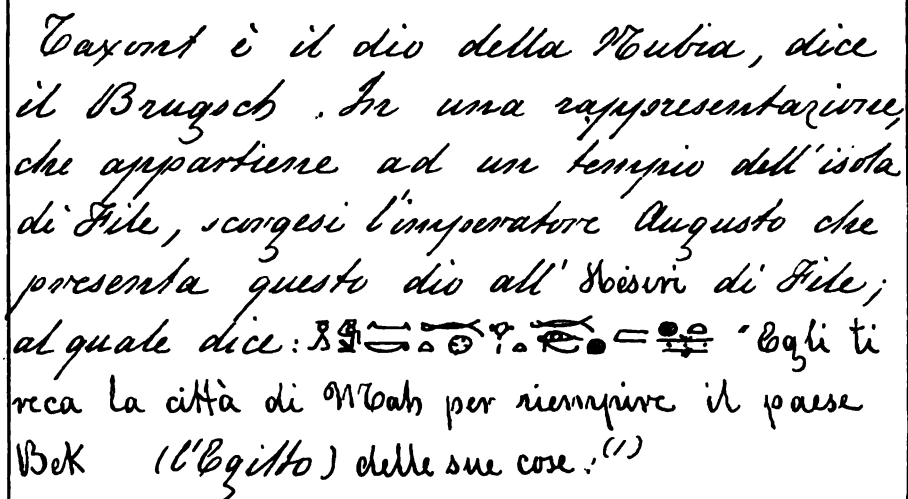 Taxont è il dio della Nubia, dice
il Brugsch. In una rappresentazione,
che appartiene ad un tempio dell'isola
di File, scorgesi l'imperatore Augusto che
presenta questo dio all' Hisiri di File;
al quale dice: "Egli ti
reca la città di Mah per riempire il paese
Bek (l'Egitto) delle sue cose.(1)